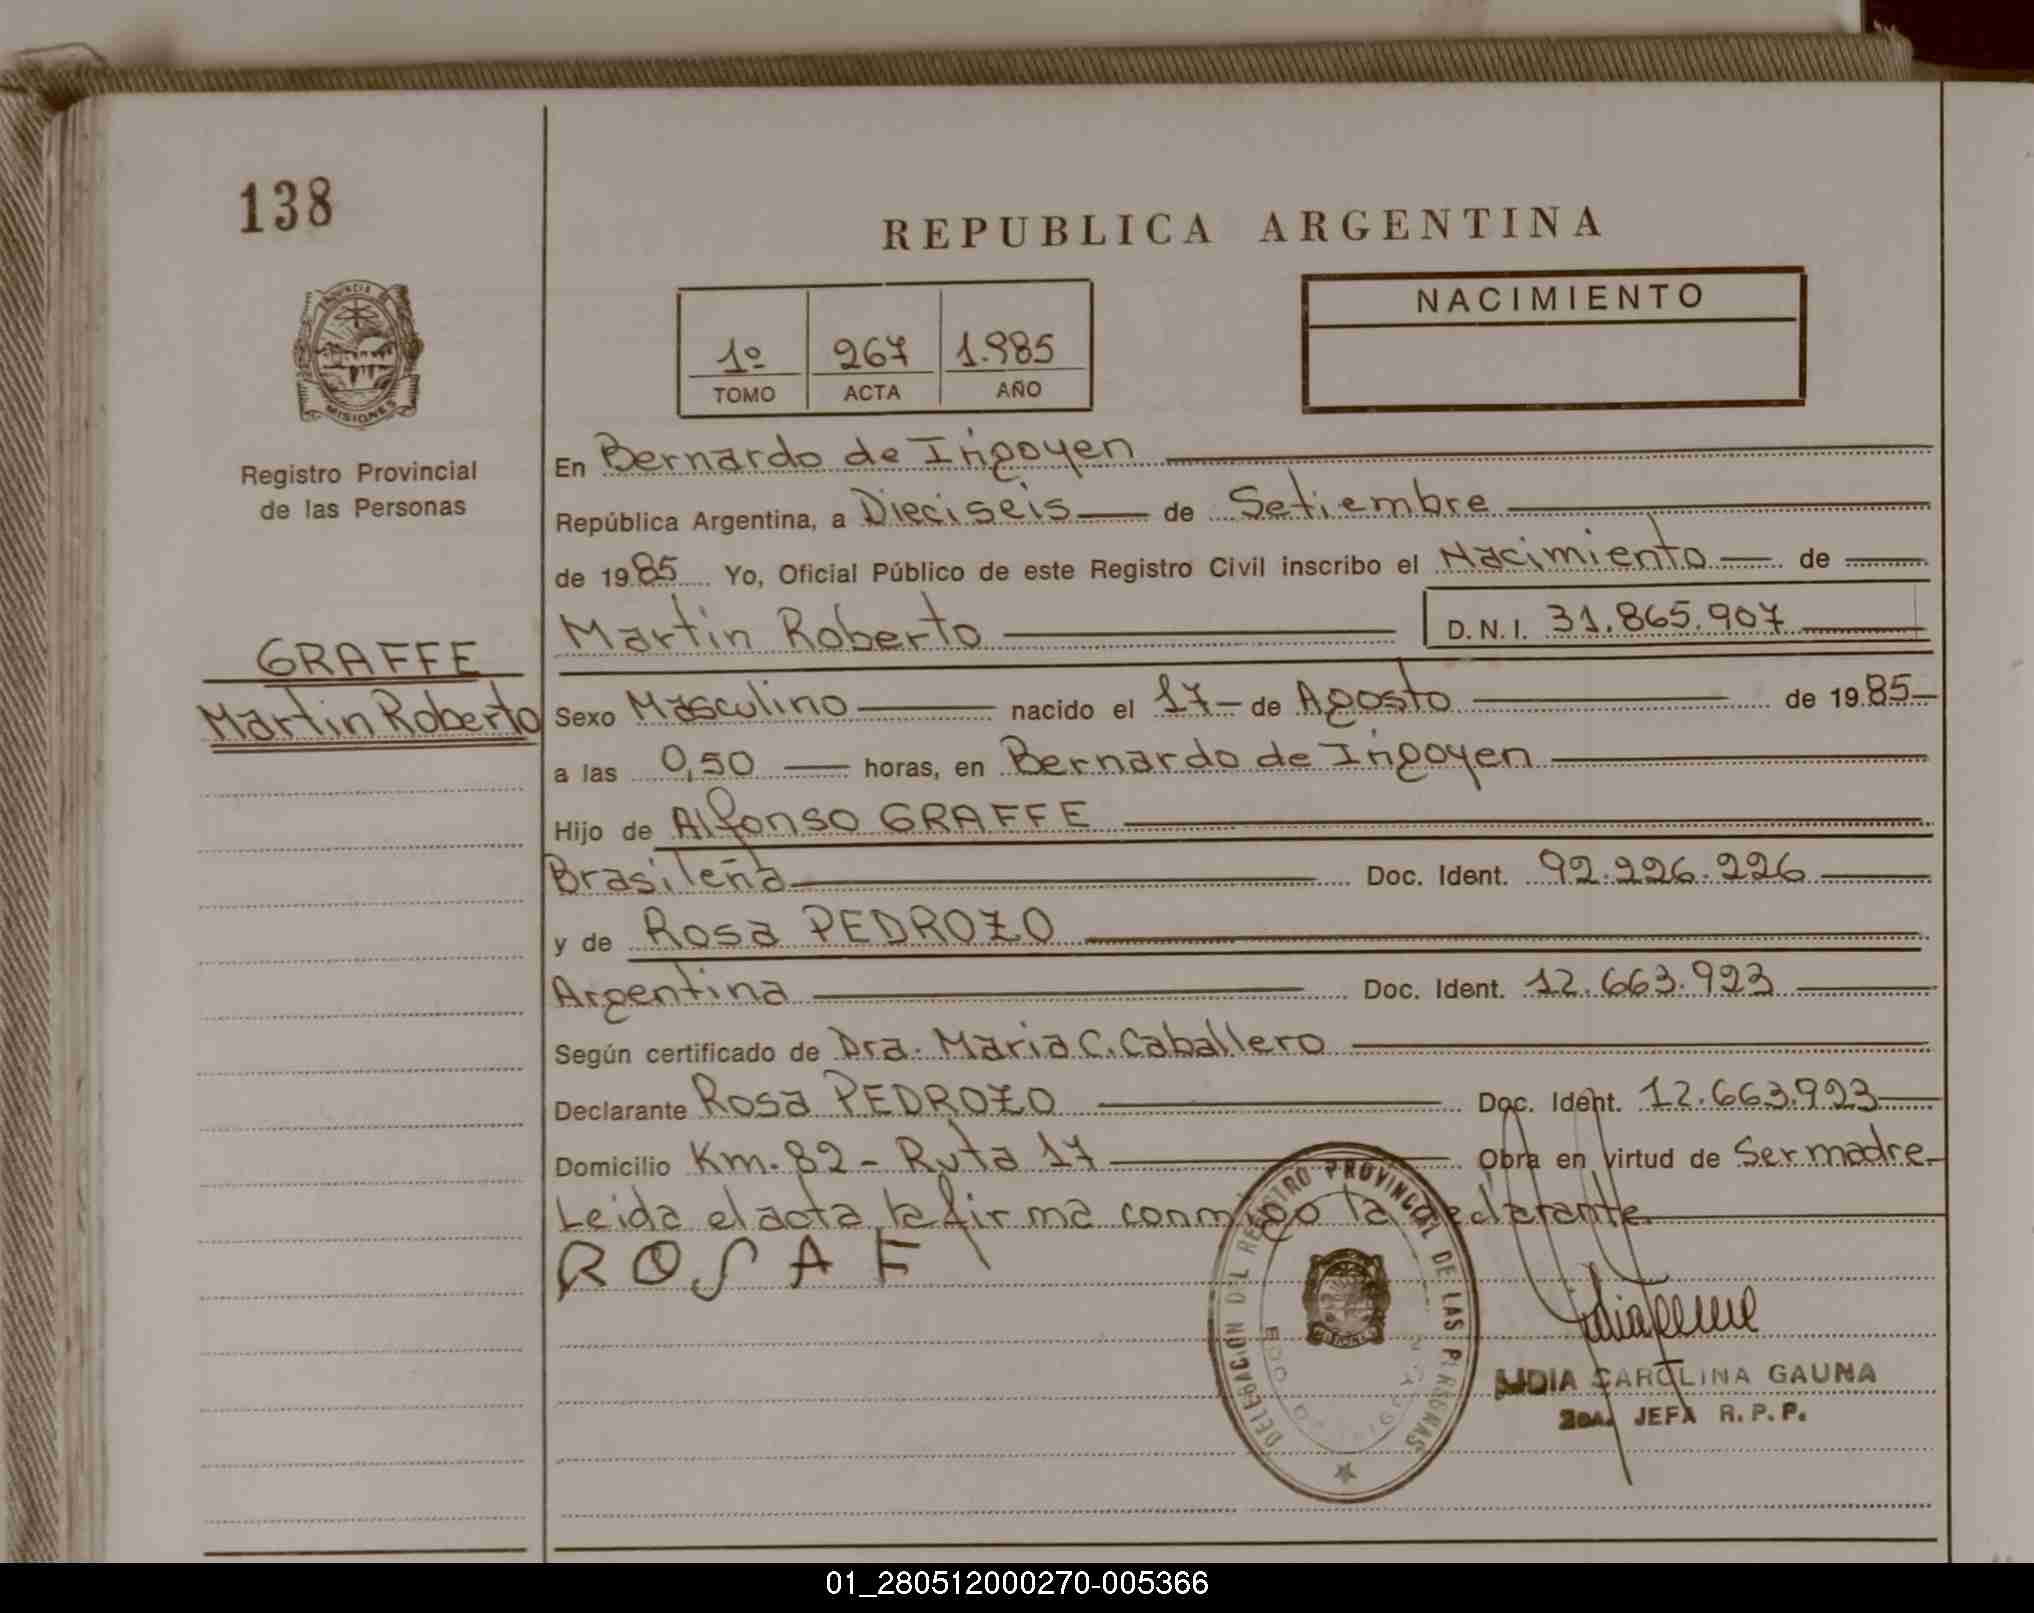 138
REPUBLICA ARGENTINA
NACIMIENTO
1º 267 1.985
TOMO ACTA AÑO
PROVINCIA DE
MISIONES
Registro Provincial
de las Personas
En Bernardo de Irigoyen
República Argentina, a Dieciseis de Setiembre
de 1985 Yo, Oficial Público de este Registro Civil inscribo el Nacimiento de
Martin Roberto D.N.I. 31.865.907
GRAFFE
Martin Roberto
Sexo Masculino nacido el 17 de Agosto de 1985
a las 0,50 horas, en Bernardo de Irigoyen
Hijo de Alfonso GRAFFE
Brasileña Doc. Ident. 92.226.226
y de Rosa PEDROZO
Argentina Doc. Ident. 12.663.923
Según certificado de Dra. Maria C. Caballero
Declarante Rosa PEDROZO Doc. Ident. 12.663.923
Domicilio Km. 82 - Ruta 17 Obra en virtud de Ser madre
Leida el acta la firma conmigo la declarante
ROSA F
DELEGACIÓN DEL REGISTRO PROVINCIAL DE LAS PERSONAS
MISIONES
LIDIA CAROLINA GAUNA
2DA. JEFA R.P.P.
01_280512000270-005366